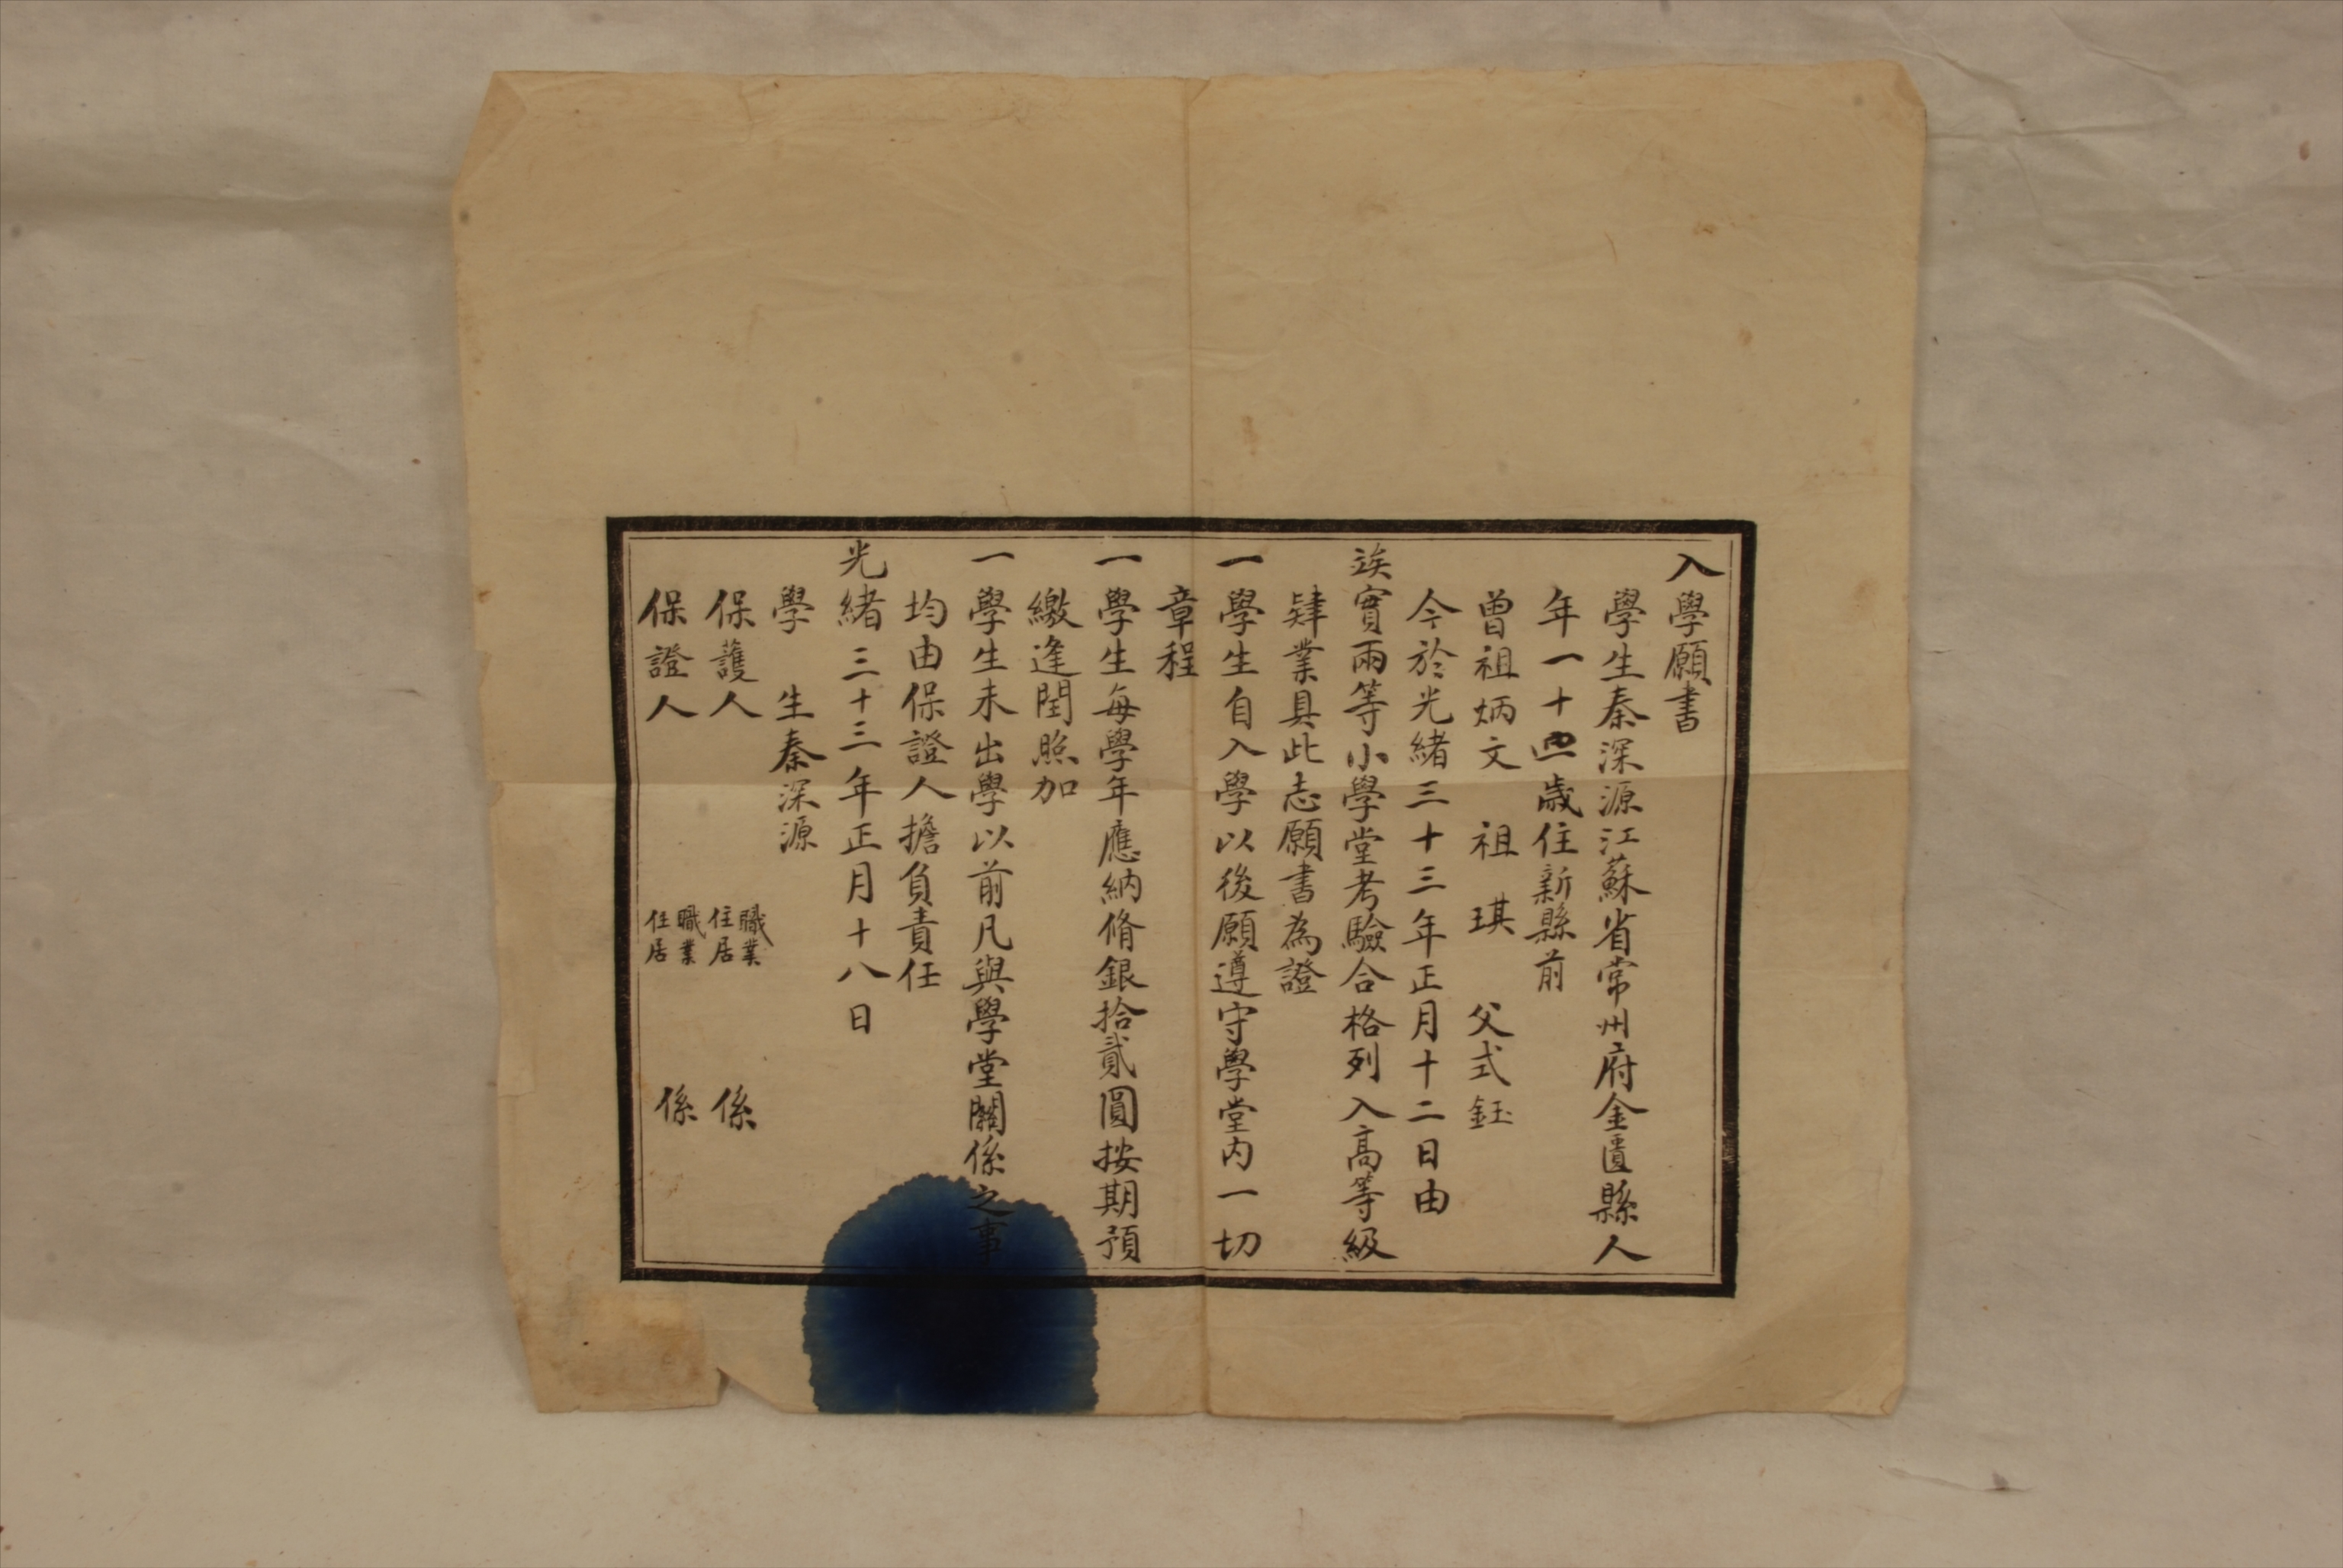 入學願書
學生秦深源江蘇省常州府金匱縣人
年一十四歲住新縣前
曾祖炳文 祖 琪 父式鈺
今於光緒三十三年正月十二日由
竢實兩等小學堂考驗合格列入高等級
肄業具此志願書為證
一學生自入學以後願遵守學堂內一切
章程
一學生每學年應納脩銀拾貳圓按期預
繳逢閏照加
一學生未出學以前凡與學堂關係之事
均由保證人擔負責任
光緒三十三年正月十八日
學 生秦深源
保護人 職業 住居 係
保證人 職業 住居 係